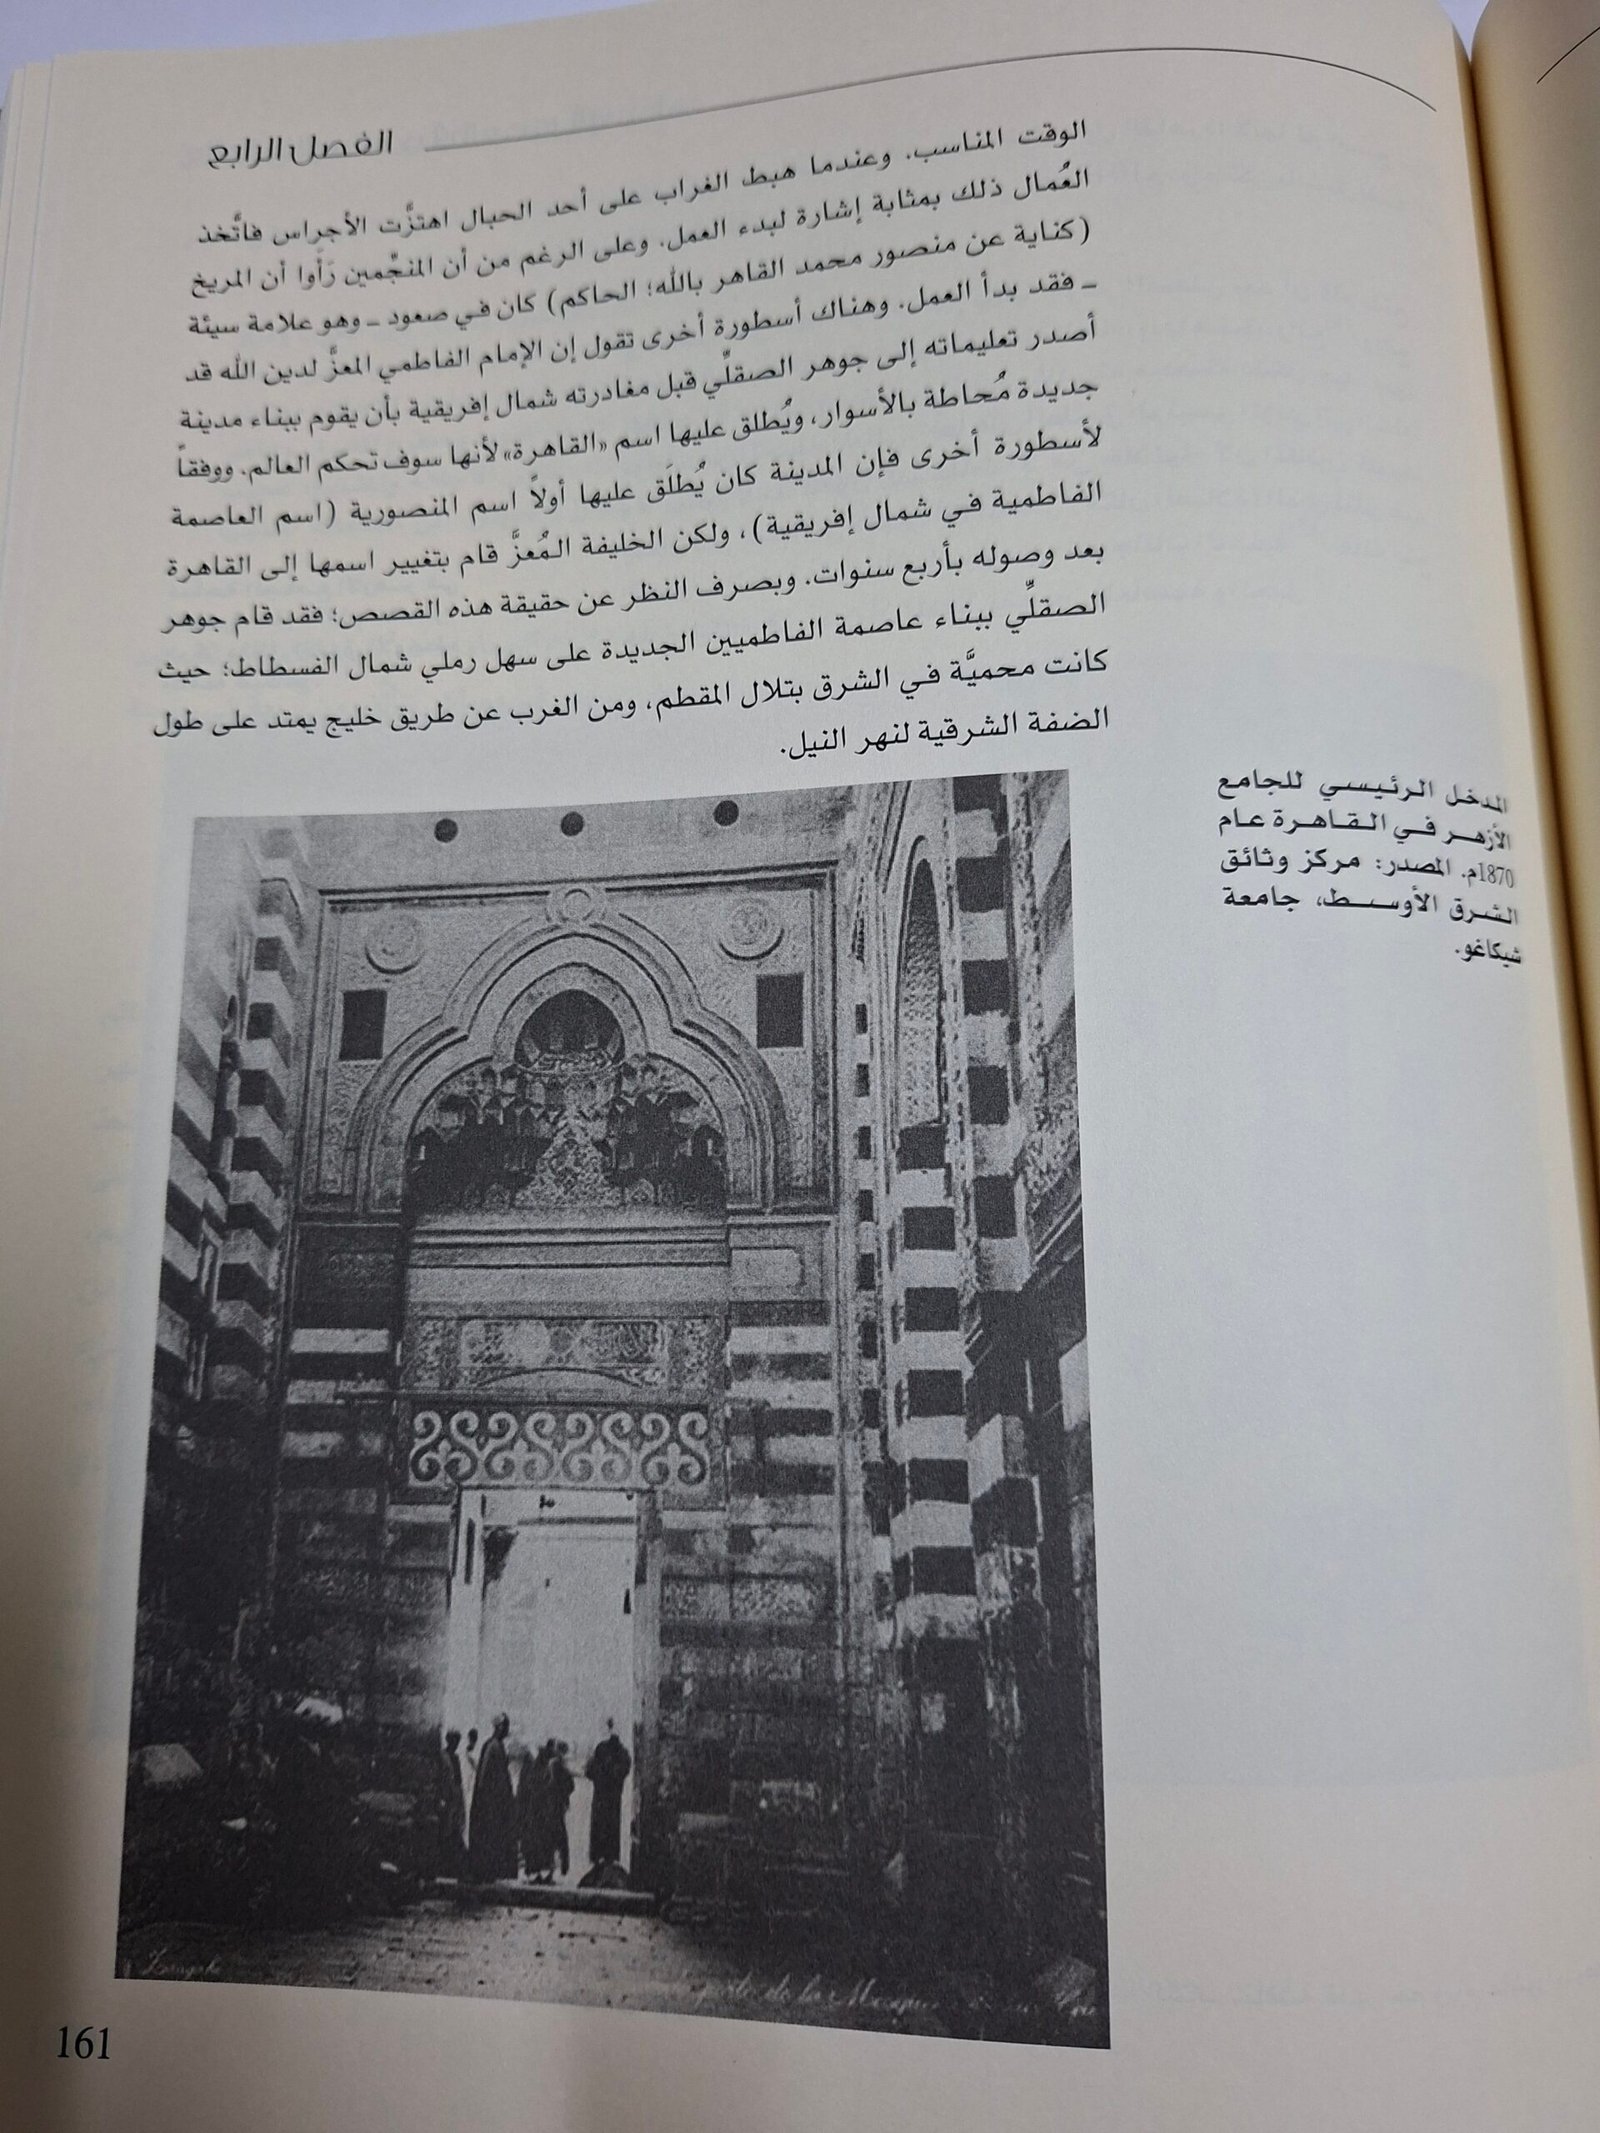 الفصل الرابع
الوقت المناسب. وعندما هبط الغراب على أحد الحبال اهتزَّت الأجراس فاتَّخذ
العُمال ذلك بمثابة إشارة لبدء العمل. وعلى الرغم من أن المنجِّمين رَأَوا أن المريخ
(كناية عن منصور محمد القاهر بالله؛ الحاكم) كان في صعود ـ وهو علامة سيئة
ـ فقد بدأ العمل. وهناك أسطورة أخرى تقول إن الإمام الفاطمي المعزَّ لدين الله قد
أصدر تعليماته إلى جوهر الصقلِّي قبل مغادرته شمال إفريقية بأن يقوم ببناء مدينة
جديدة مُحاطة بالأسوار، ويُطلق عليها اسم «القاهرة» لأنها سوف تحكم العالم. ووفقاً
لأسطورة أخرى فإن المدينة كان يُطلَق عليها أولاً اسم المنصورية (اسم العاصمة
الفاطمية في شمال إفريقية)، ولكن الخليفة المُعزَّ قام بتغيير اسمها إلى القاهرة
بعد وصوله بأربع سنوات. وبصرف النظر عن حقيقة هذه القصص؛ فقد قام جوهر
الصقلِّي ببناء عاصمة الفاطميين الجديدة على سهل رملي شمال الفسطاط؛ حيث
كانت محميَّة في الشرق بتلال المقطم، ومن الغرب عن طريق خليج يمتد على طول
الضفة الشرقية لنهر النيل.
المدخل الرئيسي للجامع
الأزهر في القاهرة عام
1870م. المصدر: مركز وثائق
الشرق الأوسط، جامعة
شيكاغو.
de la
161